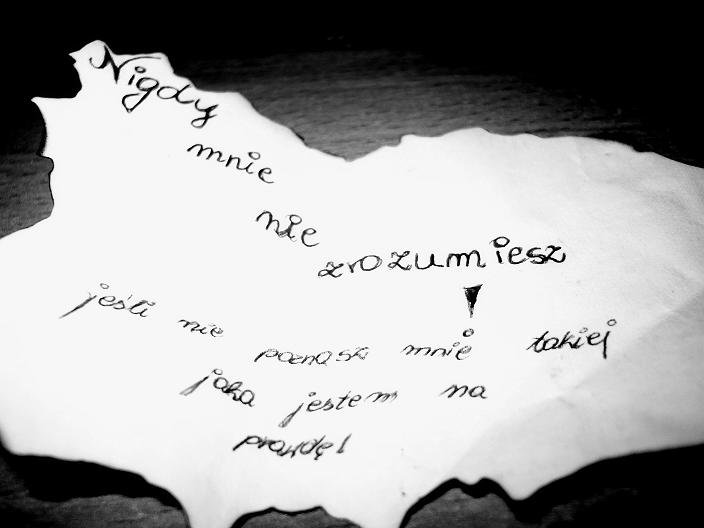 Nigdy
mnie
nie
zrozumiesz
jeśli nie poznasz mnie takiej
jaka jestem na
prawdę!